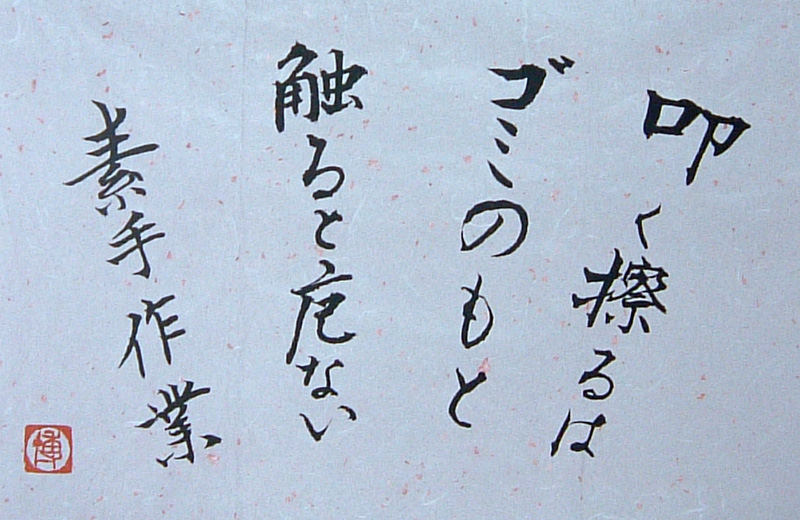 叩く擦るは
ゴミのもと
触ると危ない
素手作業
博